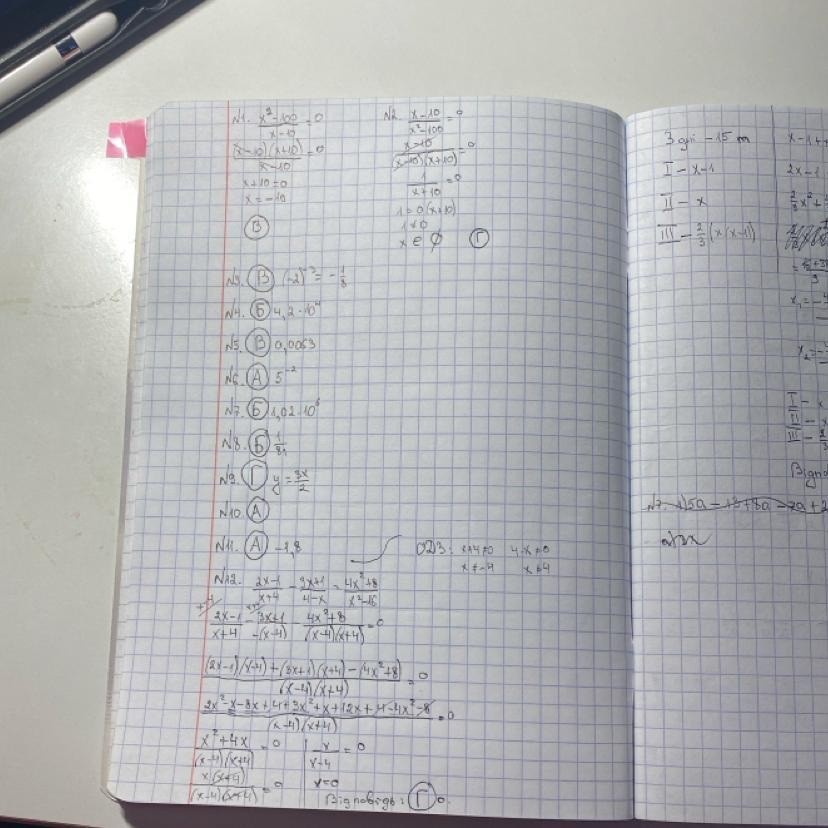 №1. (x²-100)/(x-10) = 0
((x-10)(x+10))/(x-10) = 0
x+10=0
x=-10
В
№2. (x-10)/(x²-100) = 0
(x-10)/((x-10)(x+10)) = 0
1/(x+10) = 0
1=0(x+10)
1≠0
x ∈ ∅ Г
№3. В (-2)⁻³ = -1/8
№4. Б 4,2·10⁴
№5. В 0,0063
№6. А 5⁻²
№7. Б 1,02·10⁶
№8. Б 1/81
№9. Г y = 3x/2
№10. А
№11. А -1,8
ОДЗ: x+4≠0 4-x≠0
x≠-4 x≠4
№12. (2x-1)/(x+4) - (3x+1)/(4-x) = (4x²+8)/(x²-16)
(2x-1)/(x+4) - (3x+1)/(-(x-4)) - (4x²+8)/((x-4)(x+4)) = 0
((2x-1)(x-4)+(3x+1)(x+4)-(4x²+8))/((x-4)(x+4)) = 0
(2x²-x-8x+4+3x²+x+12x+4-4x²-8)/((x-4)(x+4)) = 0
(x²+4x)/((x-4)(x+4)) = 0
(x(x+4))/((x-4)(x+4)) = 0
x/(x-4) = 0
x=0
Відповідь: Г 0.
3 дні - 15 т
I - x-1
II - x
III - 2/3(x(x-1))
2x-1
I - x
II -
III -